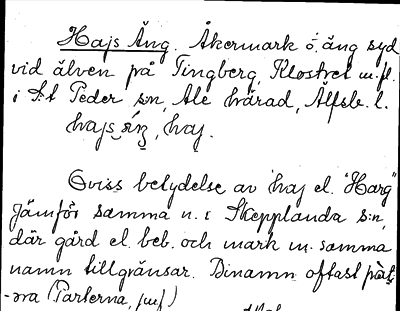 Hajs Äng. Åkermark o. äng syd
vid älven på Tingberg, Klostret m.fl.
i S:t Peder s:n, Ale härad, Älfsb. l.
haj
Oviss betydelse av haj el. "Harg"
Jämför samma n. i Skepplanda s:n,
där gård el. beb. och mark m. samma
namn tillgränsar. Binamn oftast
-na (Parterna,